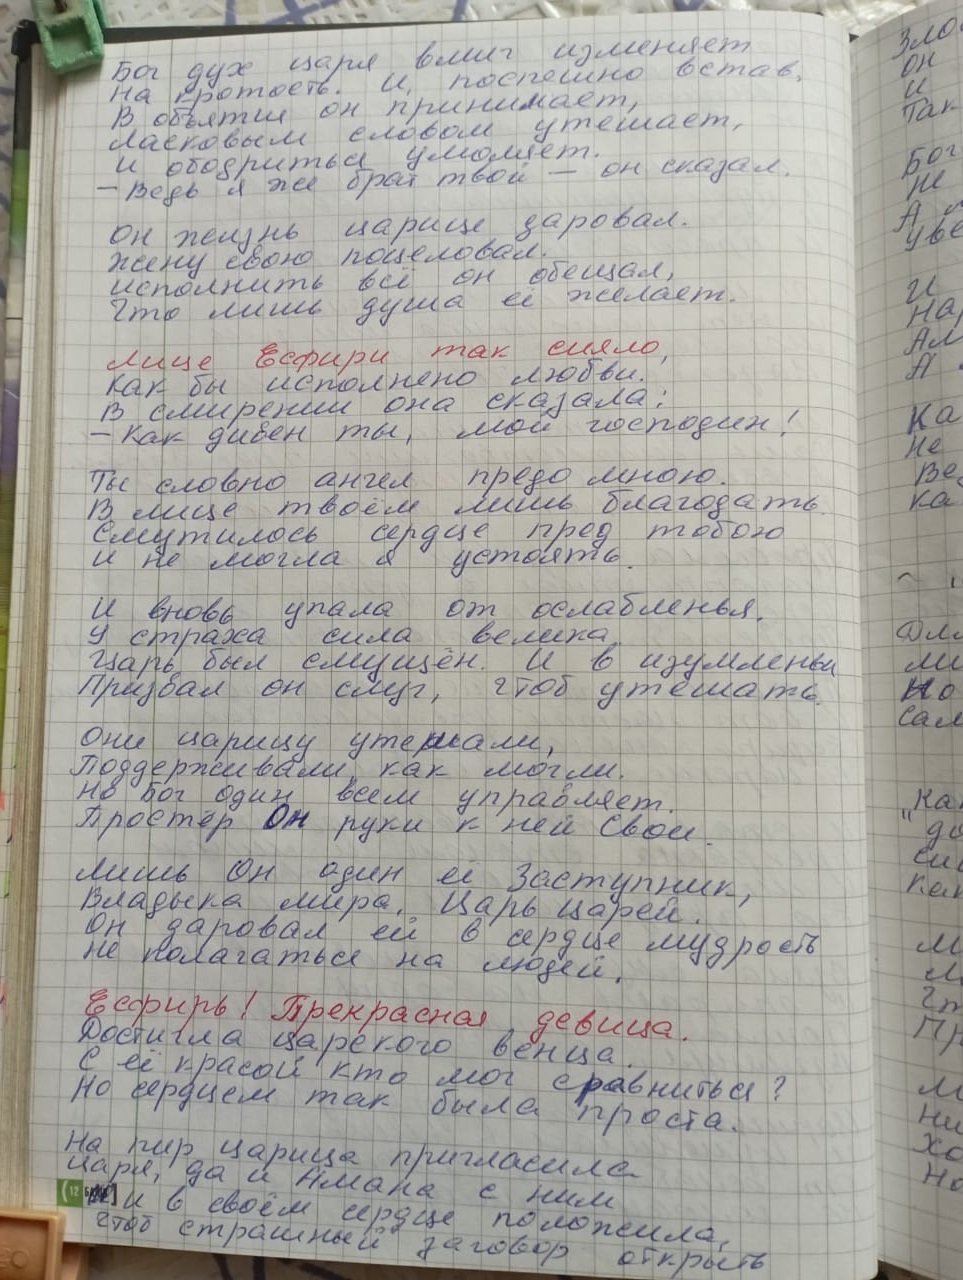 Бог дух царя вмиг изменяет
На кротость. И, поспешно встав,
В объятия он принимает,
Ласковым словом утешает,
И ободриться умоляет.
— Ведь я же брат твой — он сказал.
Он жизнь царице даровал.
Жену свою поцеловал.
Исполнить всё он обещал,
Что лишь душа её желает.
Лице Есфири так сияло,
Как бы исполнено любви.
В смирении она сказала:
— Как дивен ты, мой господин!
Ты словно ангел предо мною.
В лице твоём лишь благодать
Смутилось сердце пред тобою
И не могла я устоять.
И вновь упала от ослабленья.
У страха сила велика.
Царь был смущён. И в изумленьи
Призвал он слуг, чтоб утешать.
Они царицу утешали,
Поддерживали, как могли.
Но Бог один всем управляет.
Простёр Он руки к ней Свои.
Лишь Он один её Заступник,
Владыка мира, Царь царей.
Он даровал ей в сердце мудрость
Не полагаться на людей.
Есфирь! Прекрасная девица.
Достигла царского венца.
С её красой кто мог сравниться?
Но сердцем так была проста.
На пир царица пригласила
Царя, да и Амана с ним
И в своём сердце положила,
Чтоб страшный заговор открыть
(12
Зло
Он
И
Так
Бог
Не
А
Уве
И
На
Ам
А
Ка
Не
Ве
Ка
Для
Ми
Но
Сам
"Ка
До
Си
Ми
Чт
Пр
М
Ни
Хо
Но